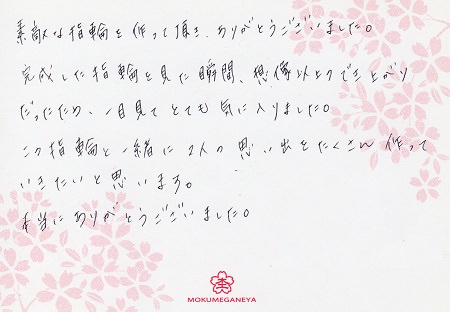 素敵な指輪を作って頂き、ありがとうございました。
完成した指輪を見た瞬間、想像以上のでき上がり
だったため、一目見てとても気に入りました。
この指輪と一緒に2人の思い出をたくさん作って
いきたいと思います。
本当にありがとうございました。
MOKUMEGANEYA